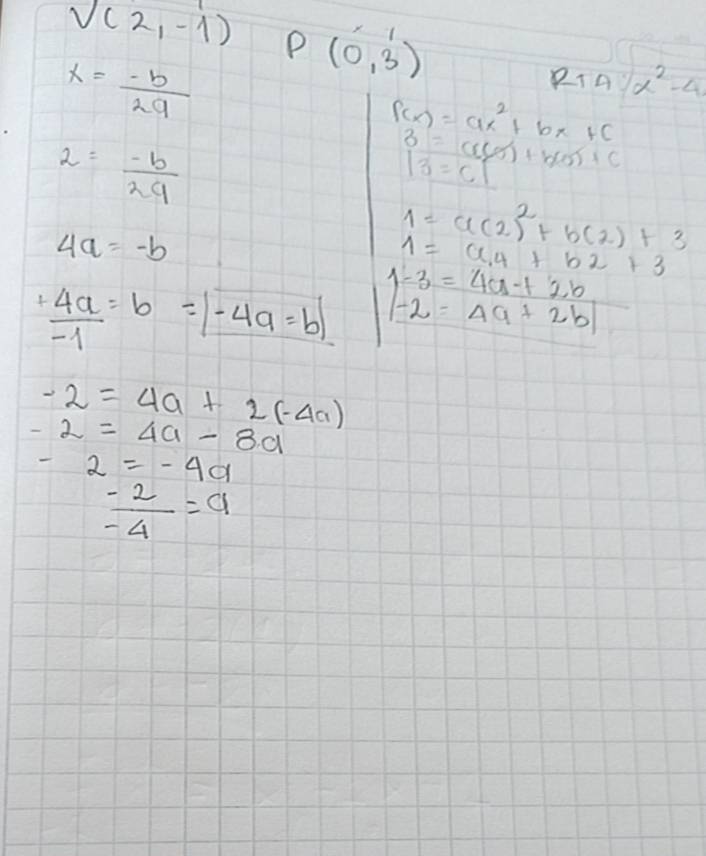 V(2,-1) P(0,3)
RTA/x²-4
x = -b/2a
2 = -b/2a
4a = -b
+4a/-1 = b = |-4a = b|
f(x) = ax² + bx + c
3 = a(0) + b(0) + c
|3 = c|
1 = a(2)² + b(2) + 3
1 = a.4 + b2 + 3
1-3 = 4a + 2b
|-2 = 4a + 2b|
-2 = 4a + 2(-4a)
-2 = 4a - 8a
-2 = -4a
-2/-4 = a